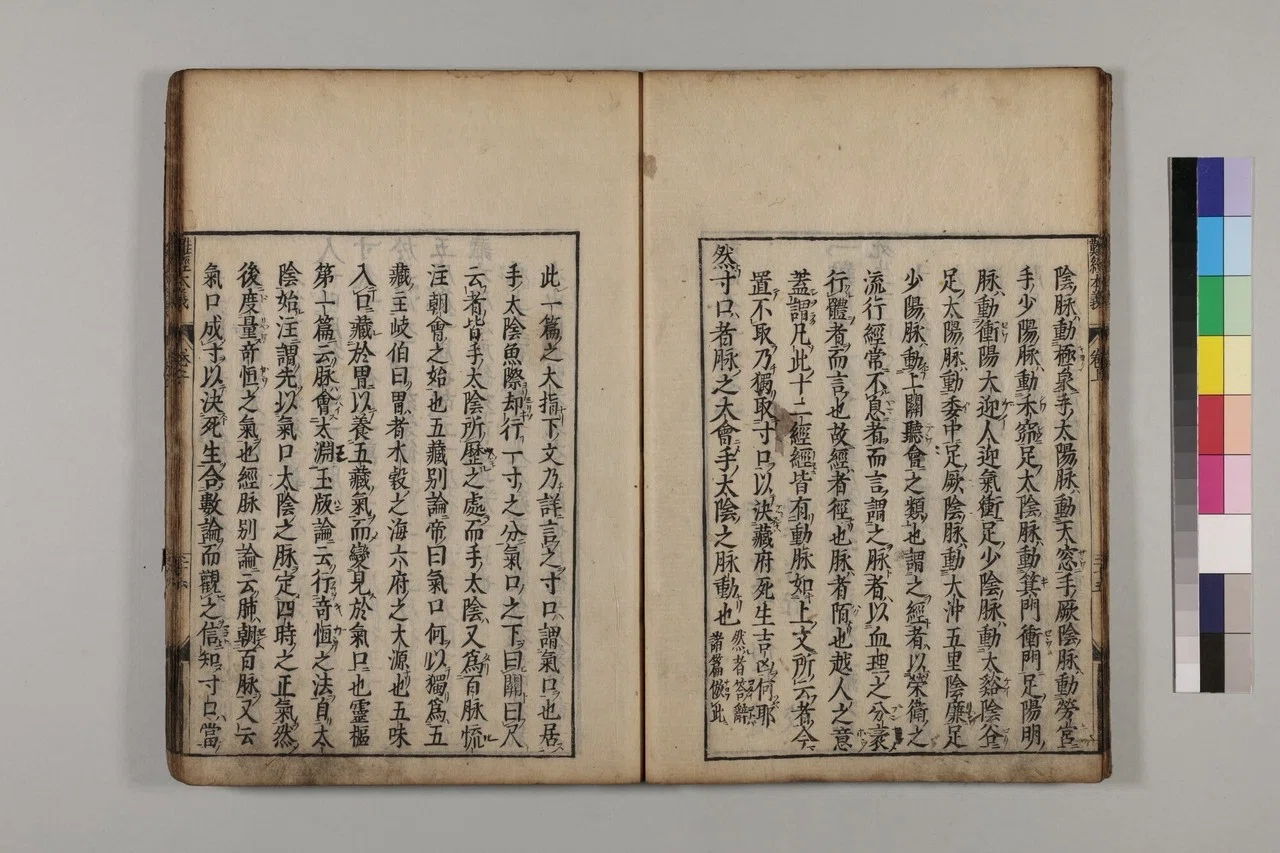 陰脉動極泉手太陽脉動天窓手厥陰脉動勞宮
手少陽脉動禾窌足太陰脉動箕門衝門足陽明
脉動衝陽大迎人迎氣衝足少陰脉動太谿陰谷
足太陽脉動委中足厥陰脉動太沖五里陰廉足
少陽脉動上關聽會之類也謂之經者以榮衛之
流行經常不息者而言謂之脉者以血理之分衺
行體者而言也故經者徑也脉者陌也越人之意
蓋謂凡此十二經經皆有動脉如上文所云者今
置不取乃獨取寸口以決藏府死生吉凶何耶
然寸口者脉之大會手太陰之脉動也
然者答辭
諸篇倣此
難經本義
卷上
二十五
此一篇之大指下文乃詳言之寸口謂氣口也居
手太陰魚際却行一寸之分氣口之下曰關曰尺
云者皆手太陰所歷之處而手太陰又爲百脉流
注朝會之始也五藏别論帝曰氣口何以獨爲五
藏主岐伯曰胃者水穀之海六府之大源也五味
入口藏於胃以養五藏氣而變見於氣口也靈樞
第十篇云脉會太淵玉版論云行奇恒之法自太
王
陰始注謂先以氣口太陰之脉定四時之正氣然
後度量奇恒之氣也經脉别論云肺朝百脉又云
氣口成寸以決死生合數論而觀之信知寸口當
難經本義